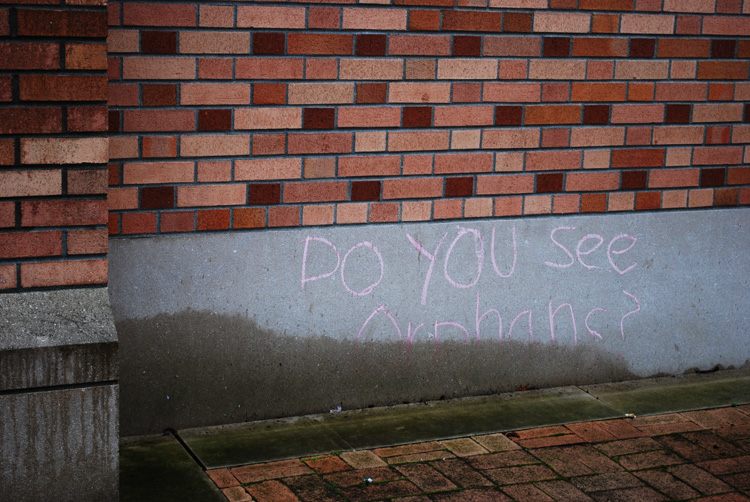 Do YOU see
Orphans?